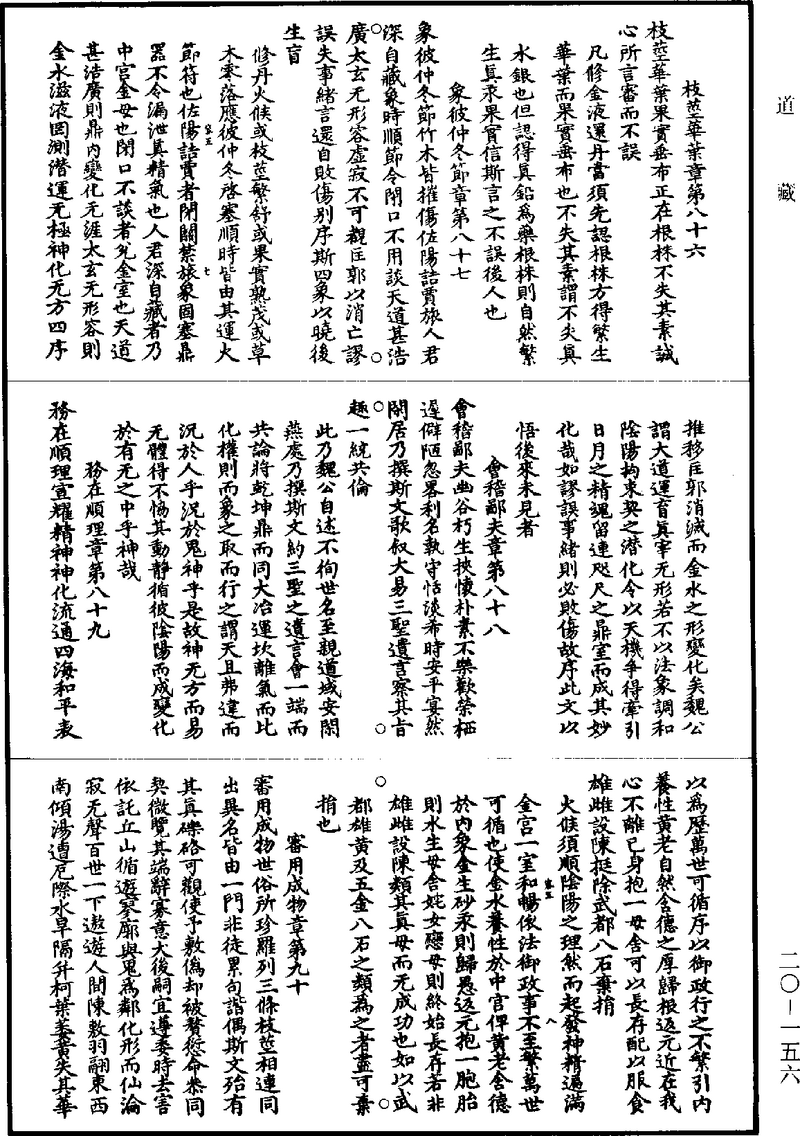 道藏
枝莖華葉章第八十六
枝莖華葉果實垂布正在根株不失其素誠
心所言審而不誤
凡修金液還丹當須先認根株方得繁生
華葉而果實垂布也不失其素謂不失真
水銀也但認得真鉛為藥根株則自然繁
生真汞果實信斯言之不誤後人也
象彼仲冬節章第八十七
象彼仲冬節竹木皆摧傷佐陽詰賈旅人君
深自藏象時順節令閉口不用談天道甚浩
廣太玄无形容虛寂不可觀匡郭以消亡謬
誤失事緒言還自敗傷別序斯四象以曉後
生盲
修丹火候或枝莖繁舒或果實熟茂或草
木零落應彼仲冬啓塞順時皆由其運火
節符也佐陽詰賈者閉關禁旅象固塞鼎
器不令漏泄真精氣也人君深自藏者乃
中宮金母也閉口不談者兊金室也天道
甚浩廣則鼎內變化无涯太玄无形容則
金水滋液固測潛運无極神化无方四序
推移匡郭消滅而金水之形變化矣魏公
謂大道運育真宰无形若不以法象調和
陰陽拘束契之潛化令以天機爭得牽引
日月之精魂留連咫尺之鼎室而成其妙
化哉如謬誤事緒則必敗傷故序此文以
悟後來未見者
會稽鄙夫章第八十八
會稽鄙夫幽谷朽生挾懷朴素不樂歡榮栖
遲僻陋忽畧利名執守恬淡希時安平宴然
閑居乃撰斯文歌叙大易三聖遺言察其旨
趣一統共倫
此乃魏公自述不徇世名至親道域安閑
燕處乃撰斯文約三聖之遺言會一端而
共論將乾坤鼎而同大冶運坎離氣而比
化權則而象之取而行之謂天且弗違而
況於人乎況於鬼神乎是故神无方而易
无體得不惕其動靜循彼陰陽而成變化
於有无之中乎神哉
務在順理章第八十九
務在順理宣耀精神神化流通四海和平表
以為歷萬世可循序以御政行之不繁引內
養性黃老自然含德之厚歸根返元近在我
心不離己身抱一毋舍可以長存配以服食
雄雌設陳挺除武都八石棄捐
火候須順陰陽之理然而起發神精遍滿
金宮一室和暢依法御政事不至繁萬世
可循也使金水養性於中宮俾黃老含德
於內象金生砂汞則歸愚返元抱一胞胎
則水生母舍姹女戀母則終始長存若非
雄雌設陳類其真母而无成功也如以武
都雄黃及五金八石之類為之者盡可棄
捐也
審用成物章第九十
審用成物世俗所珍羅列三條枝莖相連同
出異名皆由一門非徒累句諧偶斯文殆有
其真礫硌可觀使予敷偽却被贅愆命叅同
契微覽其端辭寡意大後嗣宜遵委時去害
依託丘山循遊寥廓與鬼為鄰化形而仙淪
寂无聲百世一下遨遊人間陳敷羽翮東西
南傾湯遭厄際水旱隔并柯葉萎黃失其華
二〇－一五六